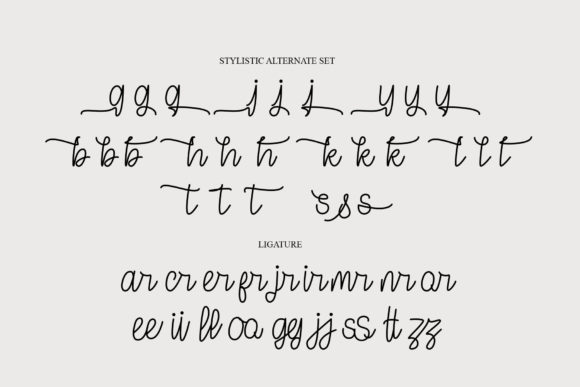 STYLISTIC ALTERNATE SET
g g g j j j y y y
b b b h h h k k k l l l
t t t s s s
LIGATURE
ar cr er fr jr ir mr nr or
ee ii ll oo gg jj ss tt zz